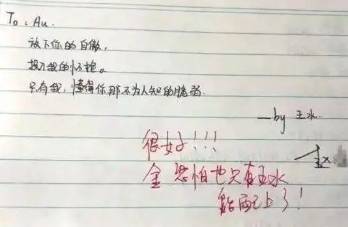 To: Au.
放下你的自傲,
投入我的怀抱。
只有我,懂得你那不为人知的脆弱.
——by 王水.
很好!!!
金恐怕也只有王水
能配上了!